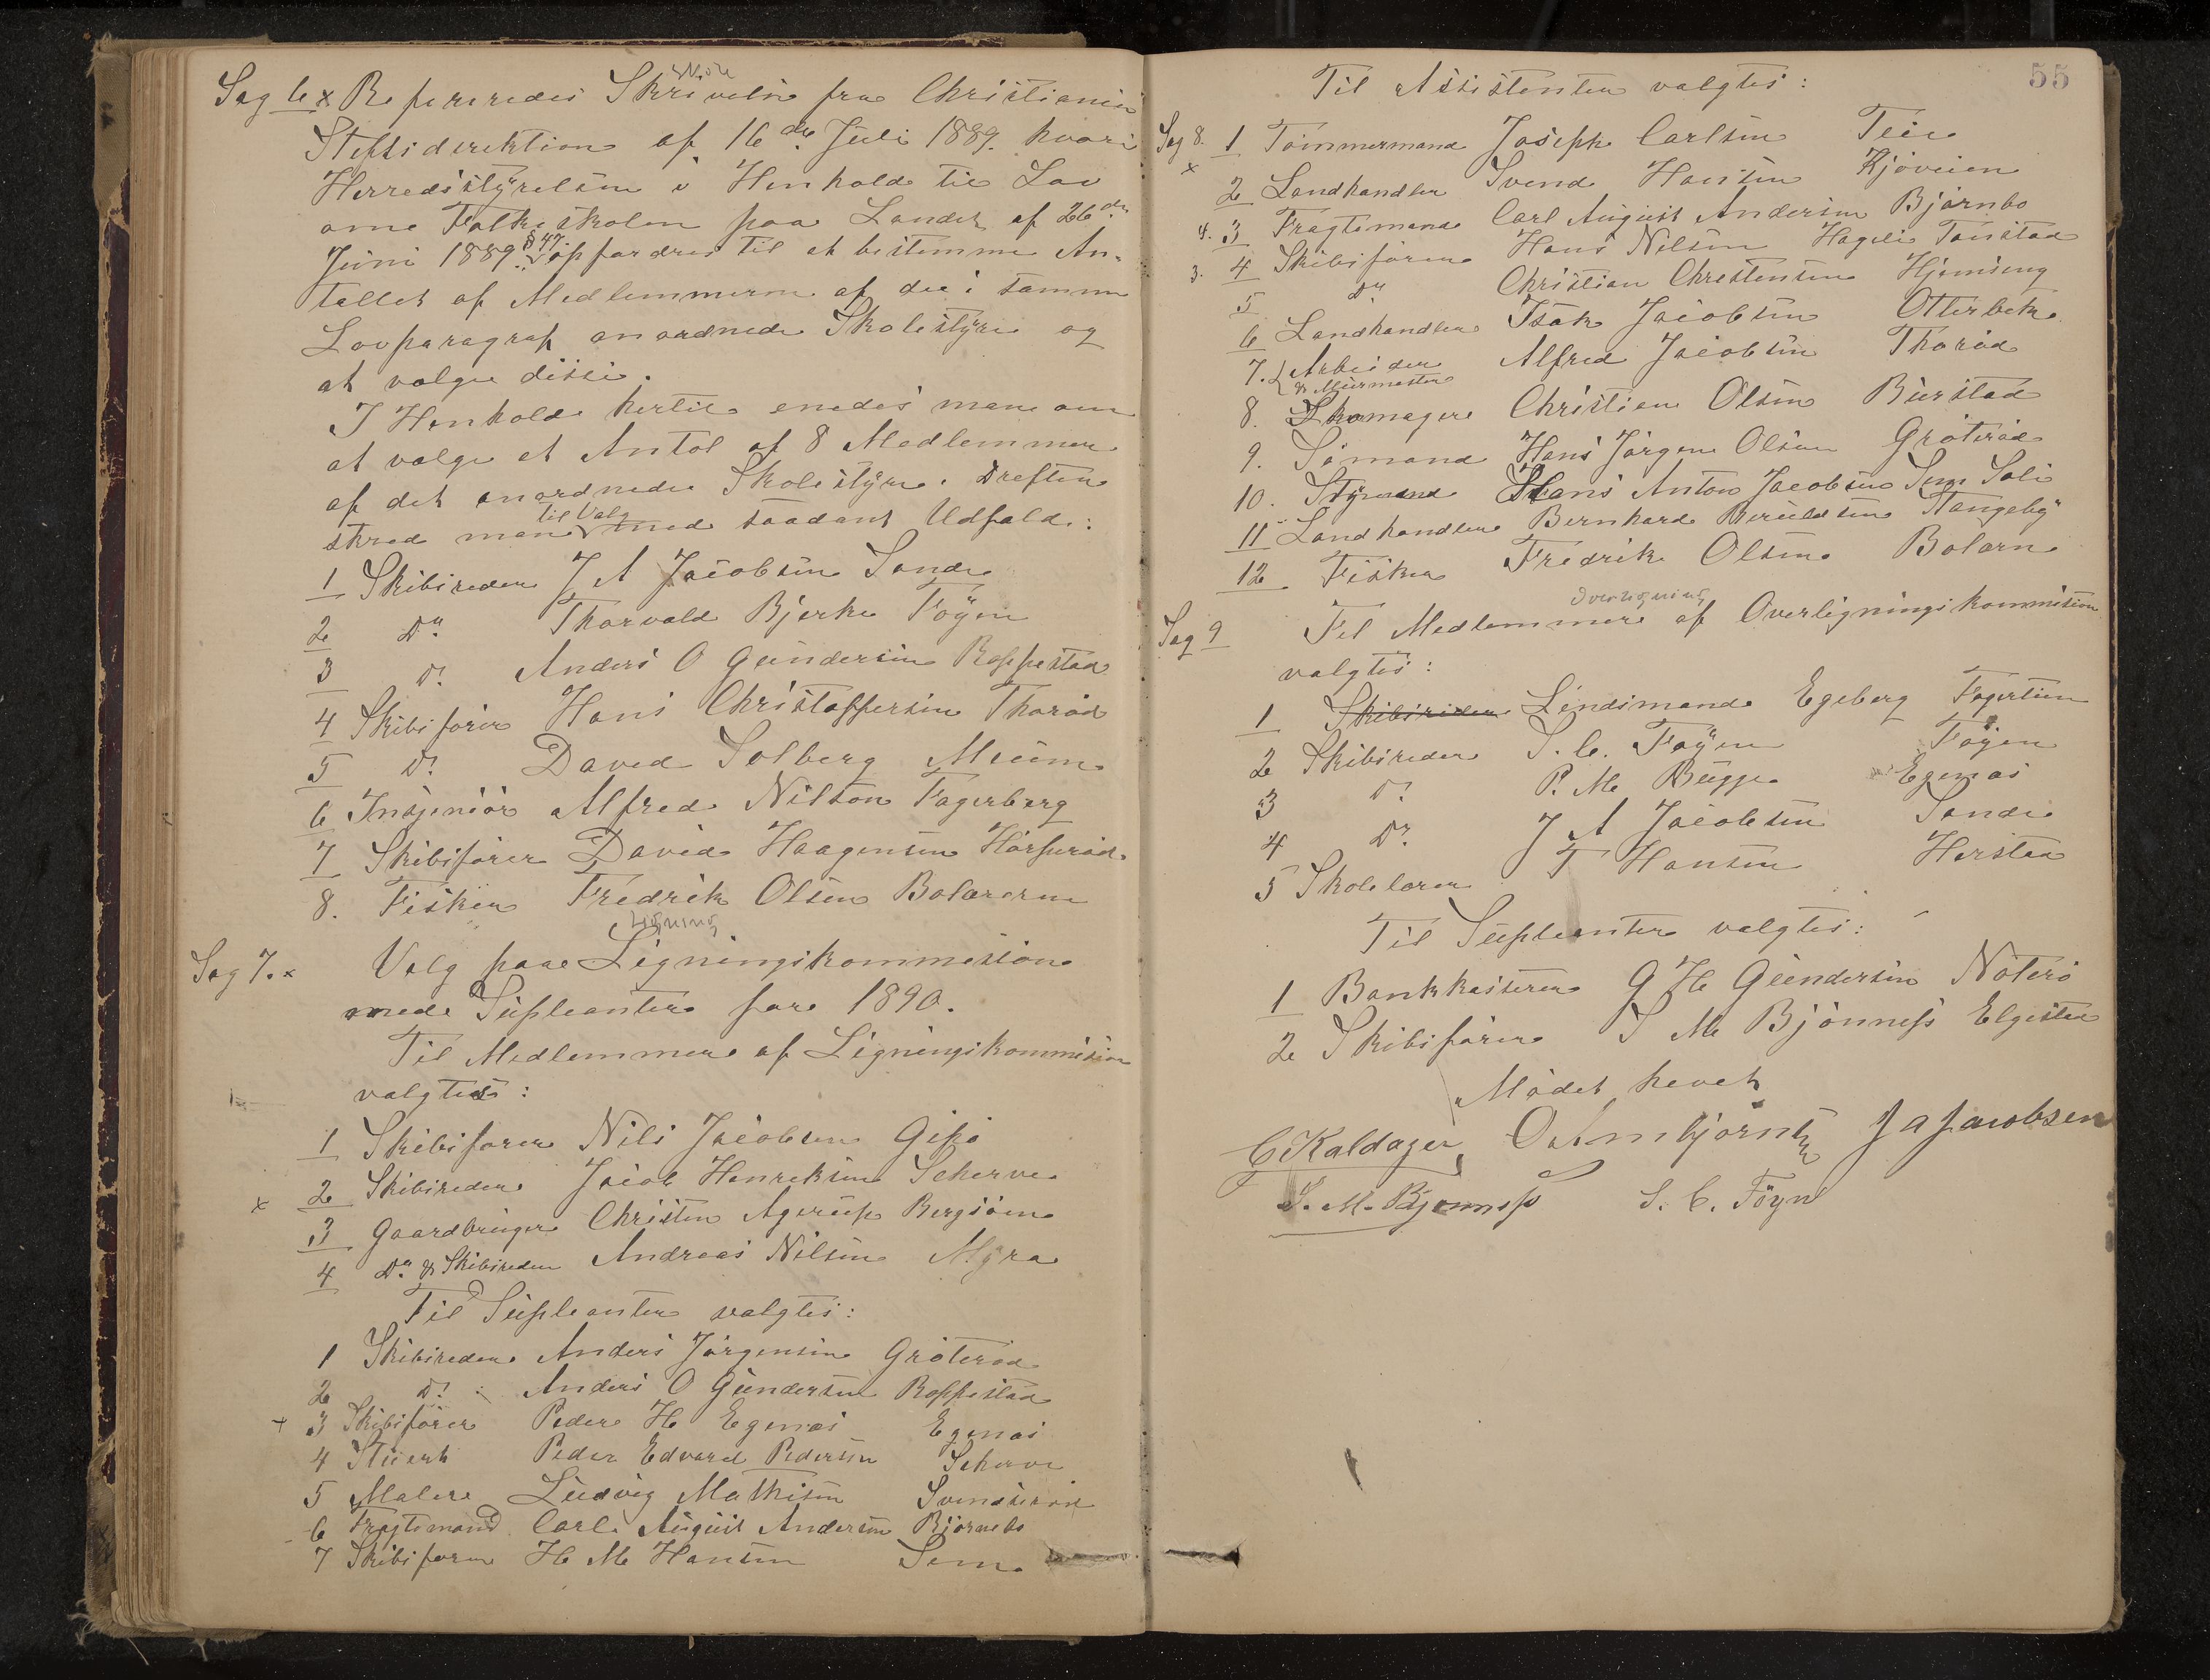 Skole
Sag 6 x Refereredes Skrivelse fra Christiania
Stiftsdirektion af 16de Juli 1889. hvori
Herredsstyrelsen i Henhold til Lov
om Folkeskolen paa Landet af 26de
Juni 1889 § 47. opfordres til at bestemme An-
tallet af Medlemmerne af det i samme
Lovparagraf anordnede Skolestyre og
at vælge disse.
I Henhold hertil enedes man om
at vælge et Antal af 8 Medlemmer
af det anordnede Skolestyre. Derefter
skred man til Valg med saadant Udfald:
1 Skibsreder J A Jacobsen Sande
2 Do. Thorvald Bjerke Föyn
3 Do. Anders O Gundersen Roppestad
4 Skibsfører Hans Christoffersen Thorød
5 Do. David Solberg Meum
6 Insjeniör Alfred Nilson Fagerberg
7 Skibsfører David Haagensen Hårfuråd
8. Fisker Fredrik Olsen Bolærerne
Ligning
Sag 7. x Valg paa Ligningskommission
med Supleanter for 1890.
Til Medlemmer af Ligningskommision
valgtes:
1 Skibsfører Nils Jacobsen Gipö
x 2 Skibsreder Jacob Henriksen Scherve
3 Gaardbruger Christen Agerup Bergsöen
4 Do. & Skibsreder Andreas Nilsen Myra
Til Supleanter valgtes:
1 Skibsreder Anders Jörgensen Gröteröd
2 Do. Anders O Gundersen Roppestad
+ 3 Skibsfører Peder H Egenæs Egenæs
4 Stuert Peder Edvard Pedersen Scherve
5 Maler Ludvig Mathisen Svendseröd
6 Fragtemand Carl August Andersen Björnebo
7 Skibsfører H M Hansen Sem
55
Til Assistenter valgtes:
Sag 8. 1 Tömmermand Joseph Carlsen Teie
x
2 Landhandler Svend Hansen Kjöveien
4. 3 Fragtemand Carl August Andersen Björnbo
3. 4 Skibsfører Hans Nilsen Hageli Tönstad
5 Do Christian Christensen Hjemseng
6 Landhandler Isak Jacobsen Otterbek
7. { Arbeider Alfred Jacobsen Thoröd
& Muermester
8. Skomager Christian Olsen Buerstad
9. Sömand Hans Jörgen Olsen Gröteröd
10. Styrmand Hans Anton Jacobsen Sem Soli
11 Landhandler Bernhard Beruldsen Stangeby
12 Fisker Fredrik Olsen Bolærn
Overligning
Sag 9 Til Medlemmer af Overligningskommision
valgtes:
1 Skibsreder Lendsmand Egeberg Fagertun
2 Skibsreder S. C. Föyn Föyen
3 Do. P. M Bugge Egenæs
4 Do. J A Jacobsen Sande
5 Skolelærer T Hansen Herstad
Til Supleanter valgtes:
1 Bankkasserer G H Gundersen Nöterö
2 Skibsfører S M Bjönness Elgestad
Mödet hevet
C Kaldager O. Ambjörnsen J A Jacobsen
S. M. Bjønness S. C. Föyn